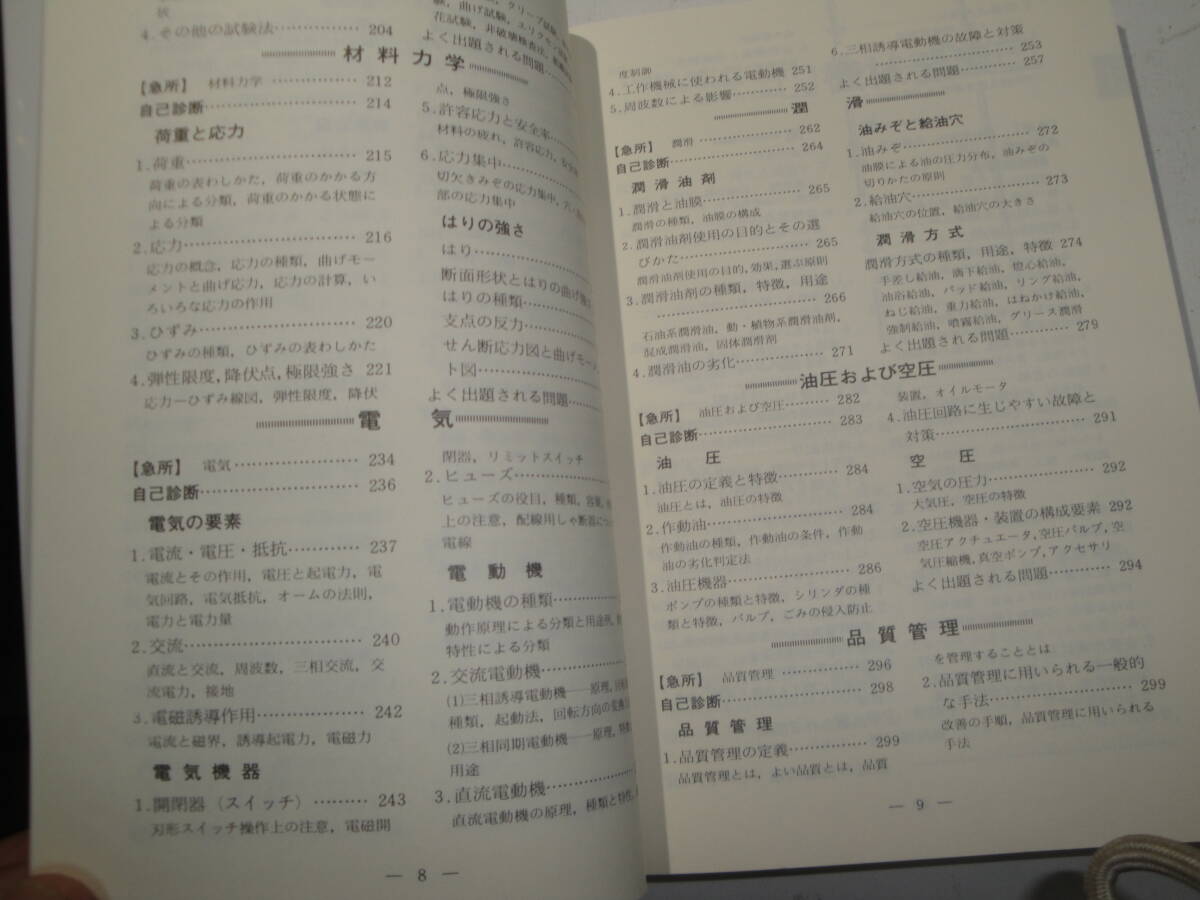 4.その他の試験法………… 204
花試験，非破壊検査法，
よく出題される問題…
材料力学
【急所】 材料力学 …………… 212
自己診断…………………… 214
荷重と応力
1.荷重……………………… 215
荷重の表わしかた，荷重のかかる方
向による分類，荷重のかかる状態に
よる分類
2.応力……………………… 216
応力の概念，応力の種類，曲げモー
メントと曲げ応力，応力の計算，い
ろいろな応力の作用
3.ひずみ…………………… 220
ひずみの種類，ひずみの表わしかた
4.弾性限度，降伏点，極限強さ 221
応力ーひずみ線図，弾性限度，降伏
点，極限強さ
5.許容応力と安全率…
材料の疲れ，許容応力，安全率
6.応力集中…………
切欠きみぞの応力集中，
部の応力集中
はりの強さ
はり…………
断面形状とはりの曲げ
はりの種類…………
支点の反力…………
せん断応力図と曲げモー
ト図…………
よく出題される問題…………
電気
【急所】 電気 ………………… 234
自己診断…………………… 236
電気の要素
1.電流・電圧・抵抗………… 237
電流とその作用，電圧と起電力，電
気回路，電気抵抗，オームの法則，
電力と電力量
2.交流……………………… 240
直流と交流，周波数，三相交流，交
流電力，接地
3.電磁誘導作用…………… 242
電流と磁界，誘導起電力，電磁力
電気機器
1.開閉器（スイッチ）……… 243
刃形スイッチ操作上の注意，電磁開
閉器，リミットスイッチ
2.ヒューズ…………
ヒューズの役目，種類，容量，
上の注意，配線用しゃ断器につ
電線
電動機
1.電動機の種類…………
動作原理による分類と用途例，
特性による分類
2.交流電動機…………
(1)三相誘導電動機──原理，
種類，起動法，回転方向の変換
(2)三相同期電動機──原理，特
用途
3.直流電動機…………
直流電動機の原理，種類と特性，
― 8 ―
度制御
4.工作機械に使われる電動機 251
5.周波数による影響………… 252
6.三相誘導電動機の故障と対策
………………… 253
よく出題される問題………… 257
潤滑
【急所】 潤滑 ………………… 262
自己診断…………………… 264
潤滑油剤
1.潤滑と油膜……………… 265
潤滑の種類，油膜の構成
2.潤滑油剤使用の目的とその選
びかた…………………… 265
潤滑油剤使用の目的，効果，選ぶ原則
3.潤滑油剤の種類，特徴，用途
………………… 266
石油系潤滑油，動・植物系潤滑油剤，
混成潤滑油，固体潤滑剤
4.潤滑油の劣化…………… 271
油みぞと給油穴
1.油みぞ…………………… 272
油膜による油の圧力分布，油みぞの
切りかたの原則
2.給油穴…………………… 273
給油穴の位置，給油穴の大きさ
潤滑方式
潤滑方式の種類，用途，特徴 274
手差し給油，滴下給油，燈心給油，
油浴給油，パッド給油，リング給油，
ねじ給油，重力給油，はねかけ給油，
強制給油，噴霧給油，グリース潤滑
よく出題される問題………… 279
油圧および空圧
【急所】 油圧および空圧……… 282
自己診断…………………… 283
油圧
1.油圧の定義と特徴………… 284
油圧とは，油圧の特徴
2.作動油…………………… 284
作動油の種類，作動油の条件，作動
油の劣化判定法
3.油圧機器………………… 286
ポンプの種類と特徴，シリンダの種
類と特徴，バルブ，ごみの侵入防止
装置，オイルモータ
4.油圧回路に生じやすい故障と
対策……………………… 291
空圧
1.空気の圧力……………… 292
大気圧，空圧の特徴
2.空圧機器・装置の構成要素 292
空圧アクチュエータ，空圧バルブ，空
気圧縮機，真空ポンプ，アクセサリ
よく出題される問題………… 294
品質管理
【急所】 品質管理 …………… 296
自己診断…………………… 298
品質管理
1.品質管理の定義………… 299
品質管理とは，よい品質とは，品質
を管理することとは
2.品質管理に用いられる一般的
な手法…………………… 299
改善の手順，品質管理に用いられる
手法
― 9 ―